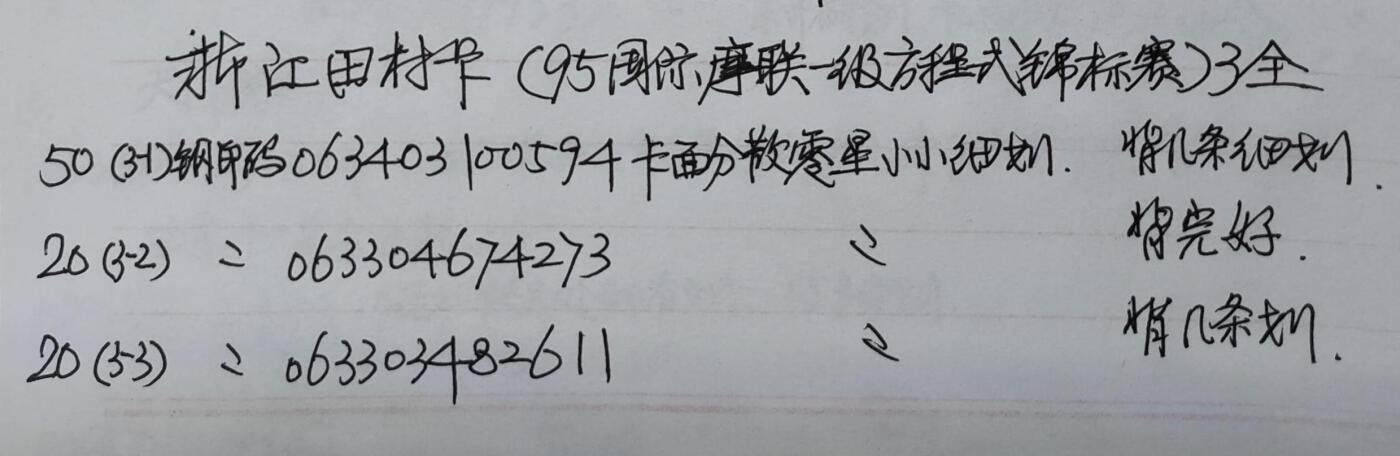 浙江田村卡（95国际摩联一级方程式锦标赛）3全
50（3-1）钢印码063403100594卡面分散零星小小细划. 背几条细划.
20（3-2） 〃 063304674273 〃 背完好.
20（3-3） 〃 063303482611 〃 背几条划.